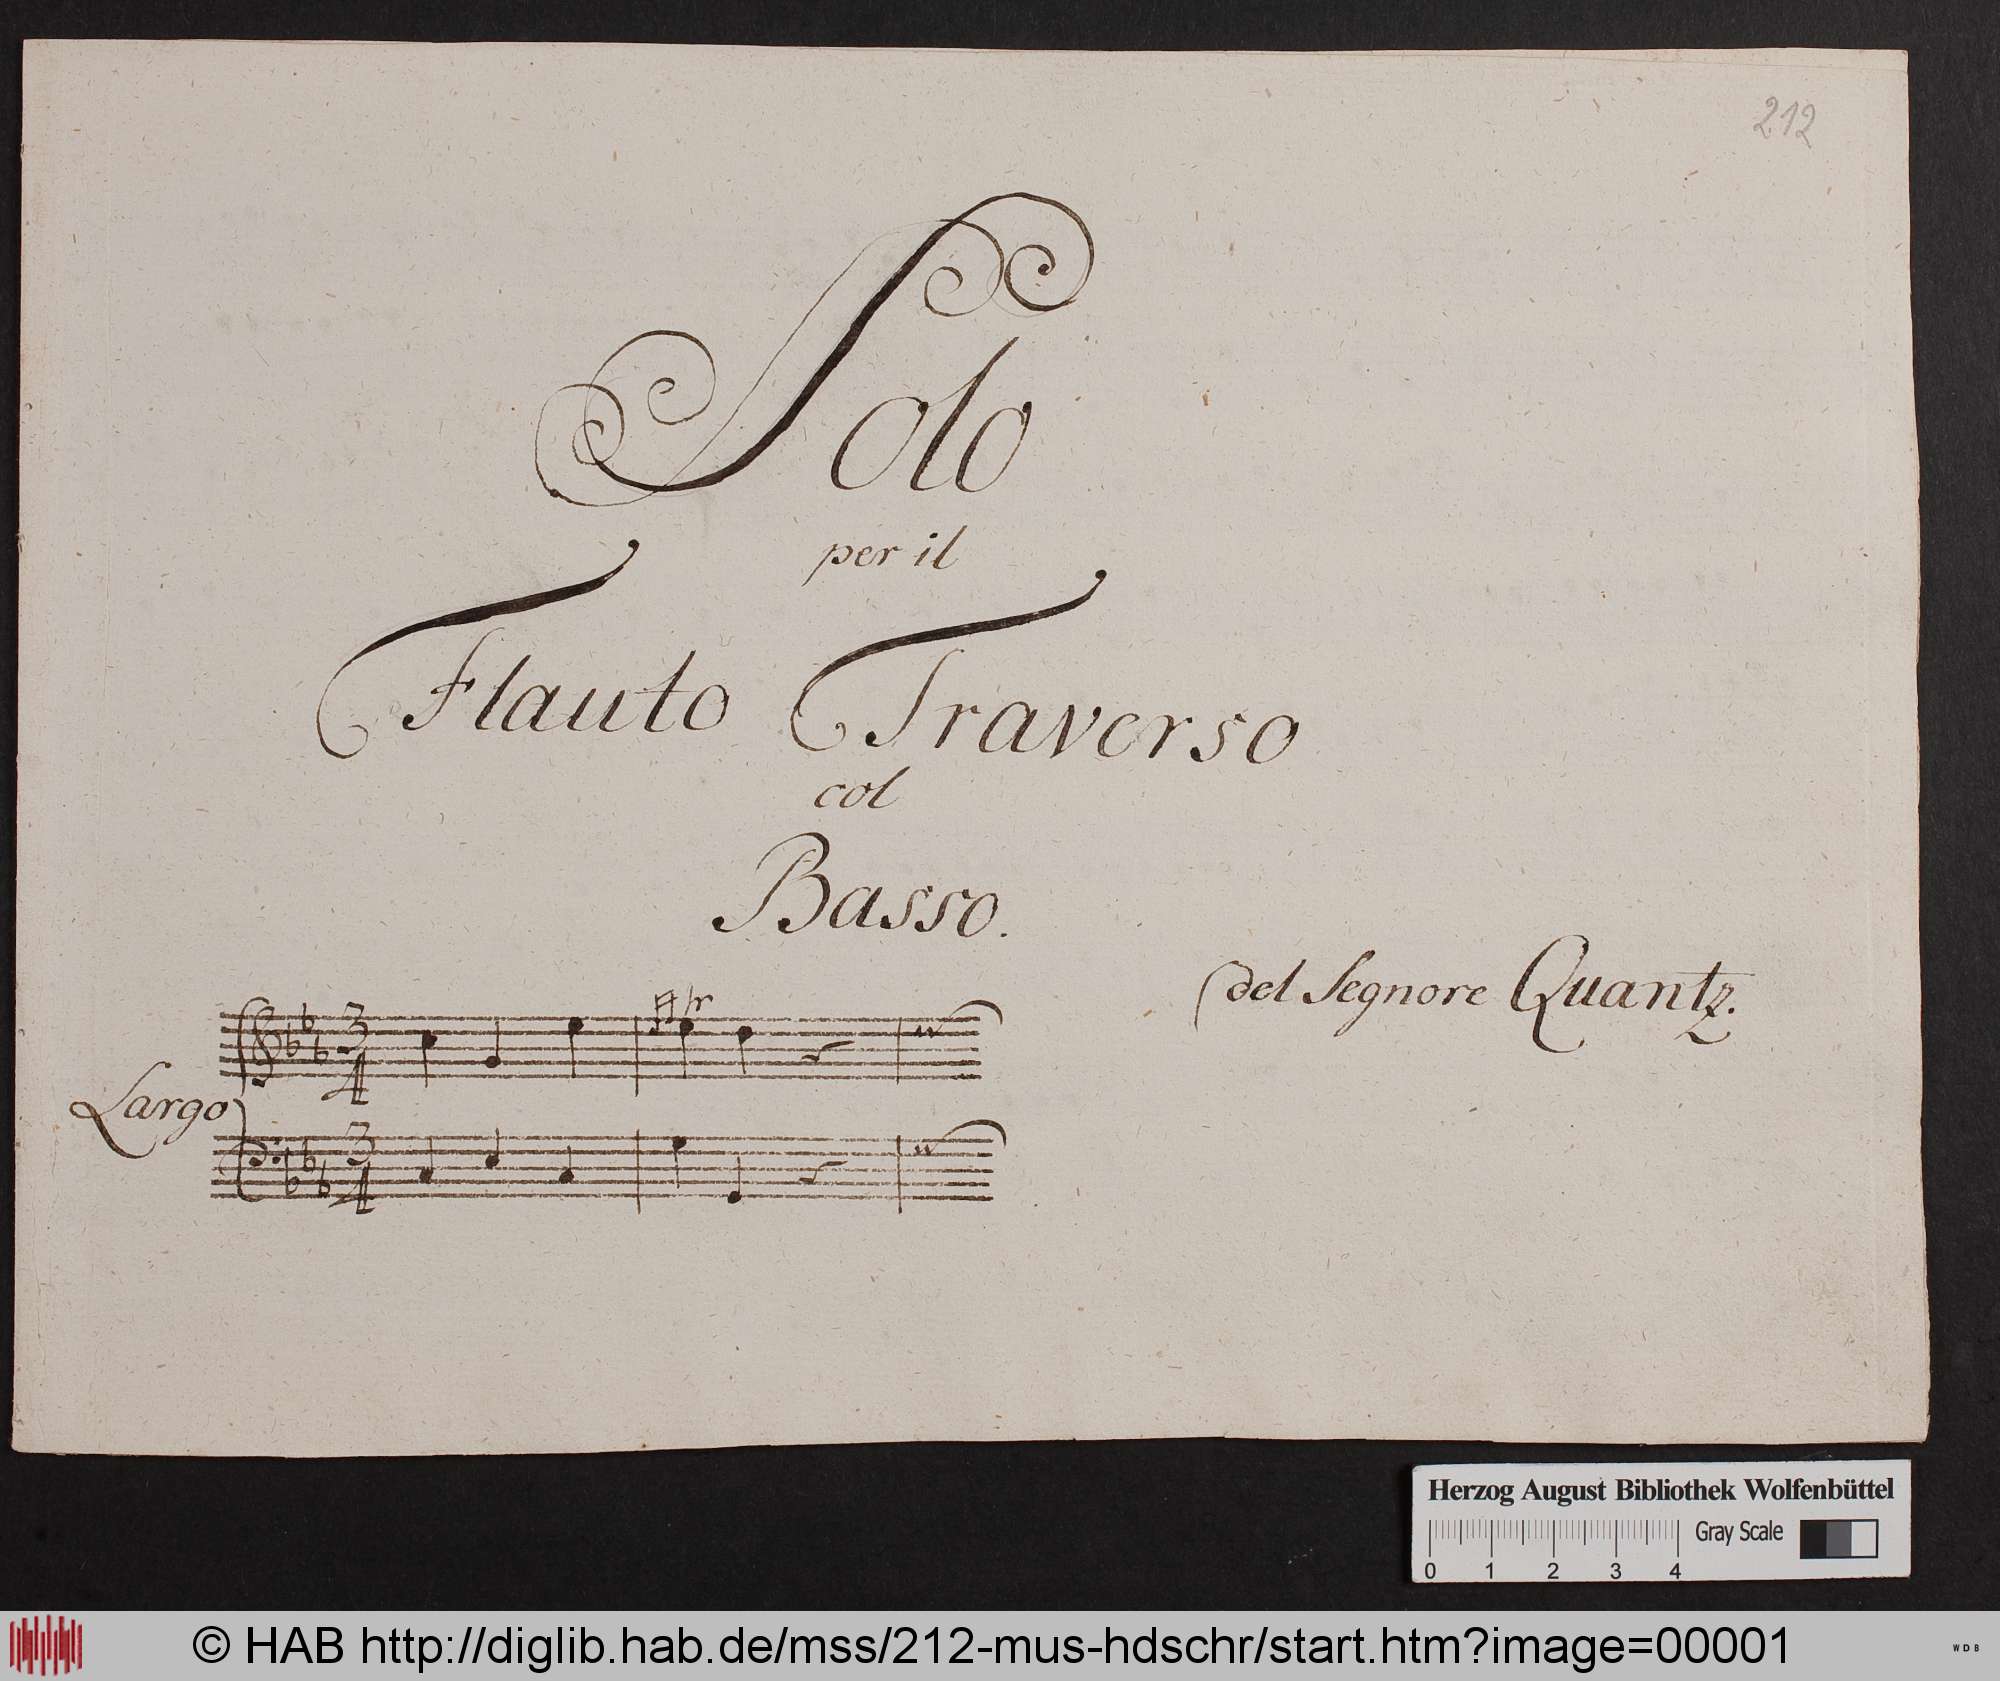 212
Solo
per il
Flauto Traverso
col
Basso.
del Segnore Quantz.
tr
3
4
Largo
3
4
Herzog August Bibliothek Wolfenbüttel
Gray Scale
0 1 2 3 4
© HAB http://diglib.hab.de/mss/212-mus-hdschr/start.htm?image=00001
WDB